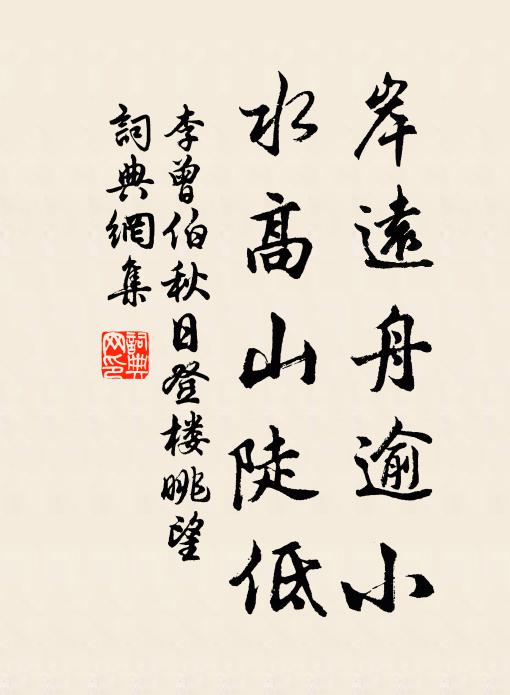 岸遠舟逾小
水高山陡低
李曾伯秋日登楼眺望
詞典網集
詞典网印